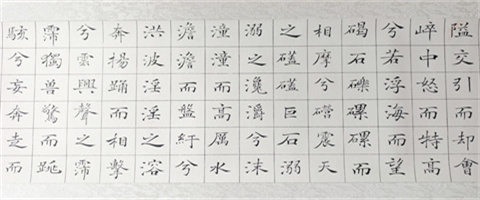 隘交引而却會
崪中怒而特高
兮若浮海而望
碣石礫磥磥而
相摩兮震天
之礚礚巨石溺
溺之瀺灂兮沫
潼潼而高厲水
澹澹而盤紆兮
洪波淫淫之溶
奔揚踊而相擊
兮雲興聲之霈
霈獨獸驚而跳
駭兮妄奔走而